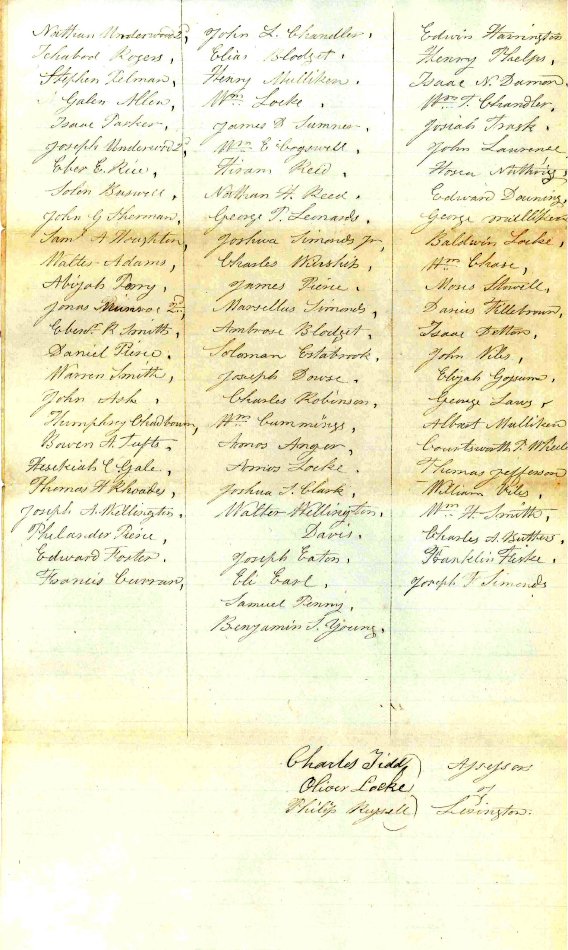 Nathan Underwood 2d,
Ichabod Rogers,
Stephen Lelman,
Galen Allen,
Isaac Parker,
Joseph Underwood 2d,
Eber E. Rice,
Solon Buswell,
John G Sherman,
Saml. A Houghton,
Walter Adams,
Abijah Perry,
Jonas Munroe 2nd,
Ebenr. R. Smith,
Daniel Pierce.
Warren Smith,
John Ask,
Humphrey Chadbourn,
Bowen A. Tufts,
Hesekiah C. Gale,
Thomas H. Rhoades,
Joseph A. Wellington.
Philander Pierce,
Edward Foster.
Francis Curran,
John L. Chandler,
Elias Blodget,
Henry Mulliken.
Wm. Locke,
James D. Sumner,
Wm E Cogswell,
Hiram Reed,
Nathan H. Reed.
George P. Leonards,
Joshua Simonds Jr,
Charles Winship,
James Pierce.
Marsellus Simonds,
Ambrose Blodget,
Soloman Estabrook,
Joseph Dowse.
Charles Robinson,
Wm Cummings,
Amos Anger,
Amos Locke.
Joshua S. Clark,
Walter Wellington,
Davis.
Joseph Eaton,
Eli Earl,
Samuel Penny,
Benjamin S. Young.
Edwin Harrington
Henry Phelps,
Isaac N. Damon.
Wm. T. Chandler,
Josiah Trask,
John Laurence
Hosea
Edward Downing,
George Mulliken
Baldwin Locke,
Wm. Chase,
Moses Stowell,
Darius Fillebrown,
Isaac Detton,
John Viles,
Elijah Gossum,
George Laws,
Albert Mulliken
Courtsworth P. Wheele
Thomas Jefferson
William Viles,
Wm H. Smith,
Charles A. Butters.
Franklin Fiske,
Joseph F. Simonds
Charles Tidd) Assessors
Oliver Locke) of
Philip Russell) Lexington.